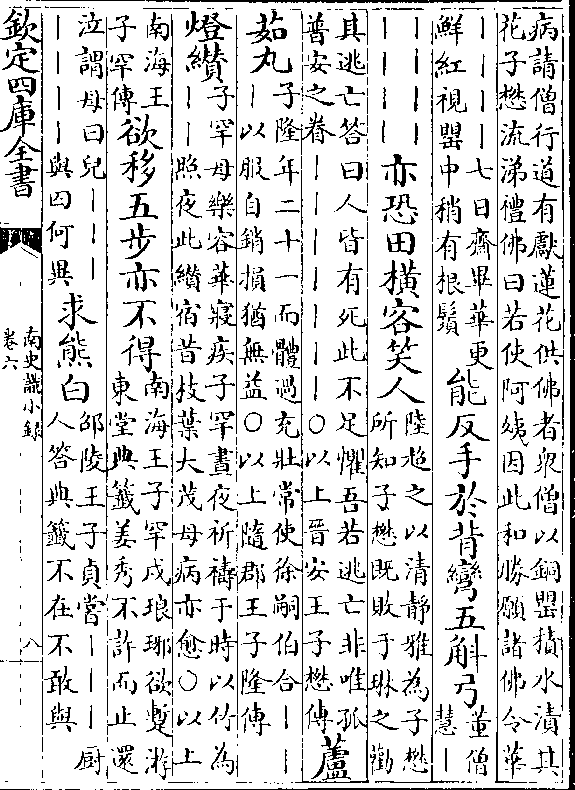 病請僧行道有獻蓮花供佛者衆僧以銅罌積水漬其
花子懋流涕禮佛曰若使阿姨因此和勝願諸佛令華
｜｜｜｜七日齋畢華更
鮮紅視罌中稍有根鬚
能反手於背彎五斛弓
董僧
慧｜
｜｜｜｜
｜｜｜｜
亦恐田橫客笑人
陸超之以清靜雅為子懋
所知子懋既敗于琳之勸
其逃亡答曰人皆有死此不足懼吾若逃亡非唯孤
普安之眷｜｜｜｜｜｜｜○以上晉安王子懋傳
蘆
茹丸
子隆年二十一而體過充壯常使徐嗣伯合｜｜
｜以服自銷損猶無益○以上隨郡王子隆傳
燈纉
子罕母樂容華寢疾子罕晝夜祈禱于時以竹為
｜｜照夜此纉宿昔枝葉大茂母病亦愈○以上
南海王
子罕傳
欲移五步亦不得
南海王子罕戍琅琊欲蹔游
東堂典籤姜秀不許而止還
泣謂母曰兒｜｜｜
｜｜｜｜與囚何異
求熊白
邵陵王子貞嘗｜｜｜厨
人答典籤不在不敢與
欽定四庫全書
南史識小錄
卷六
八